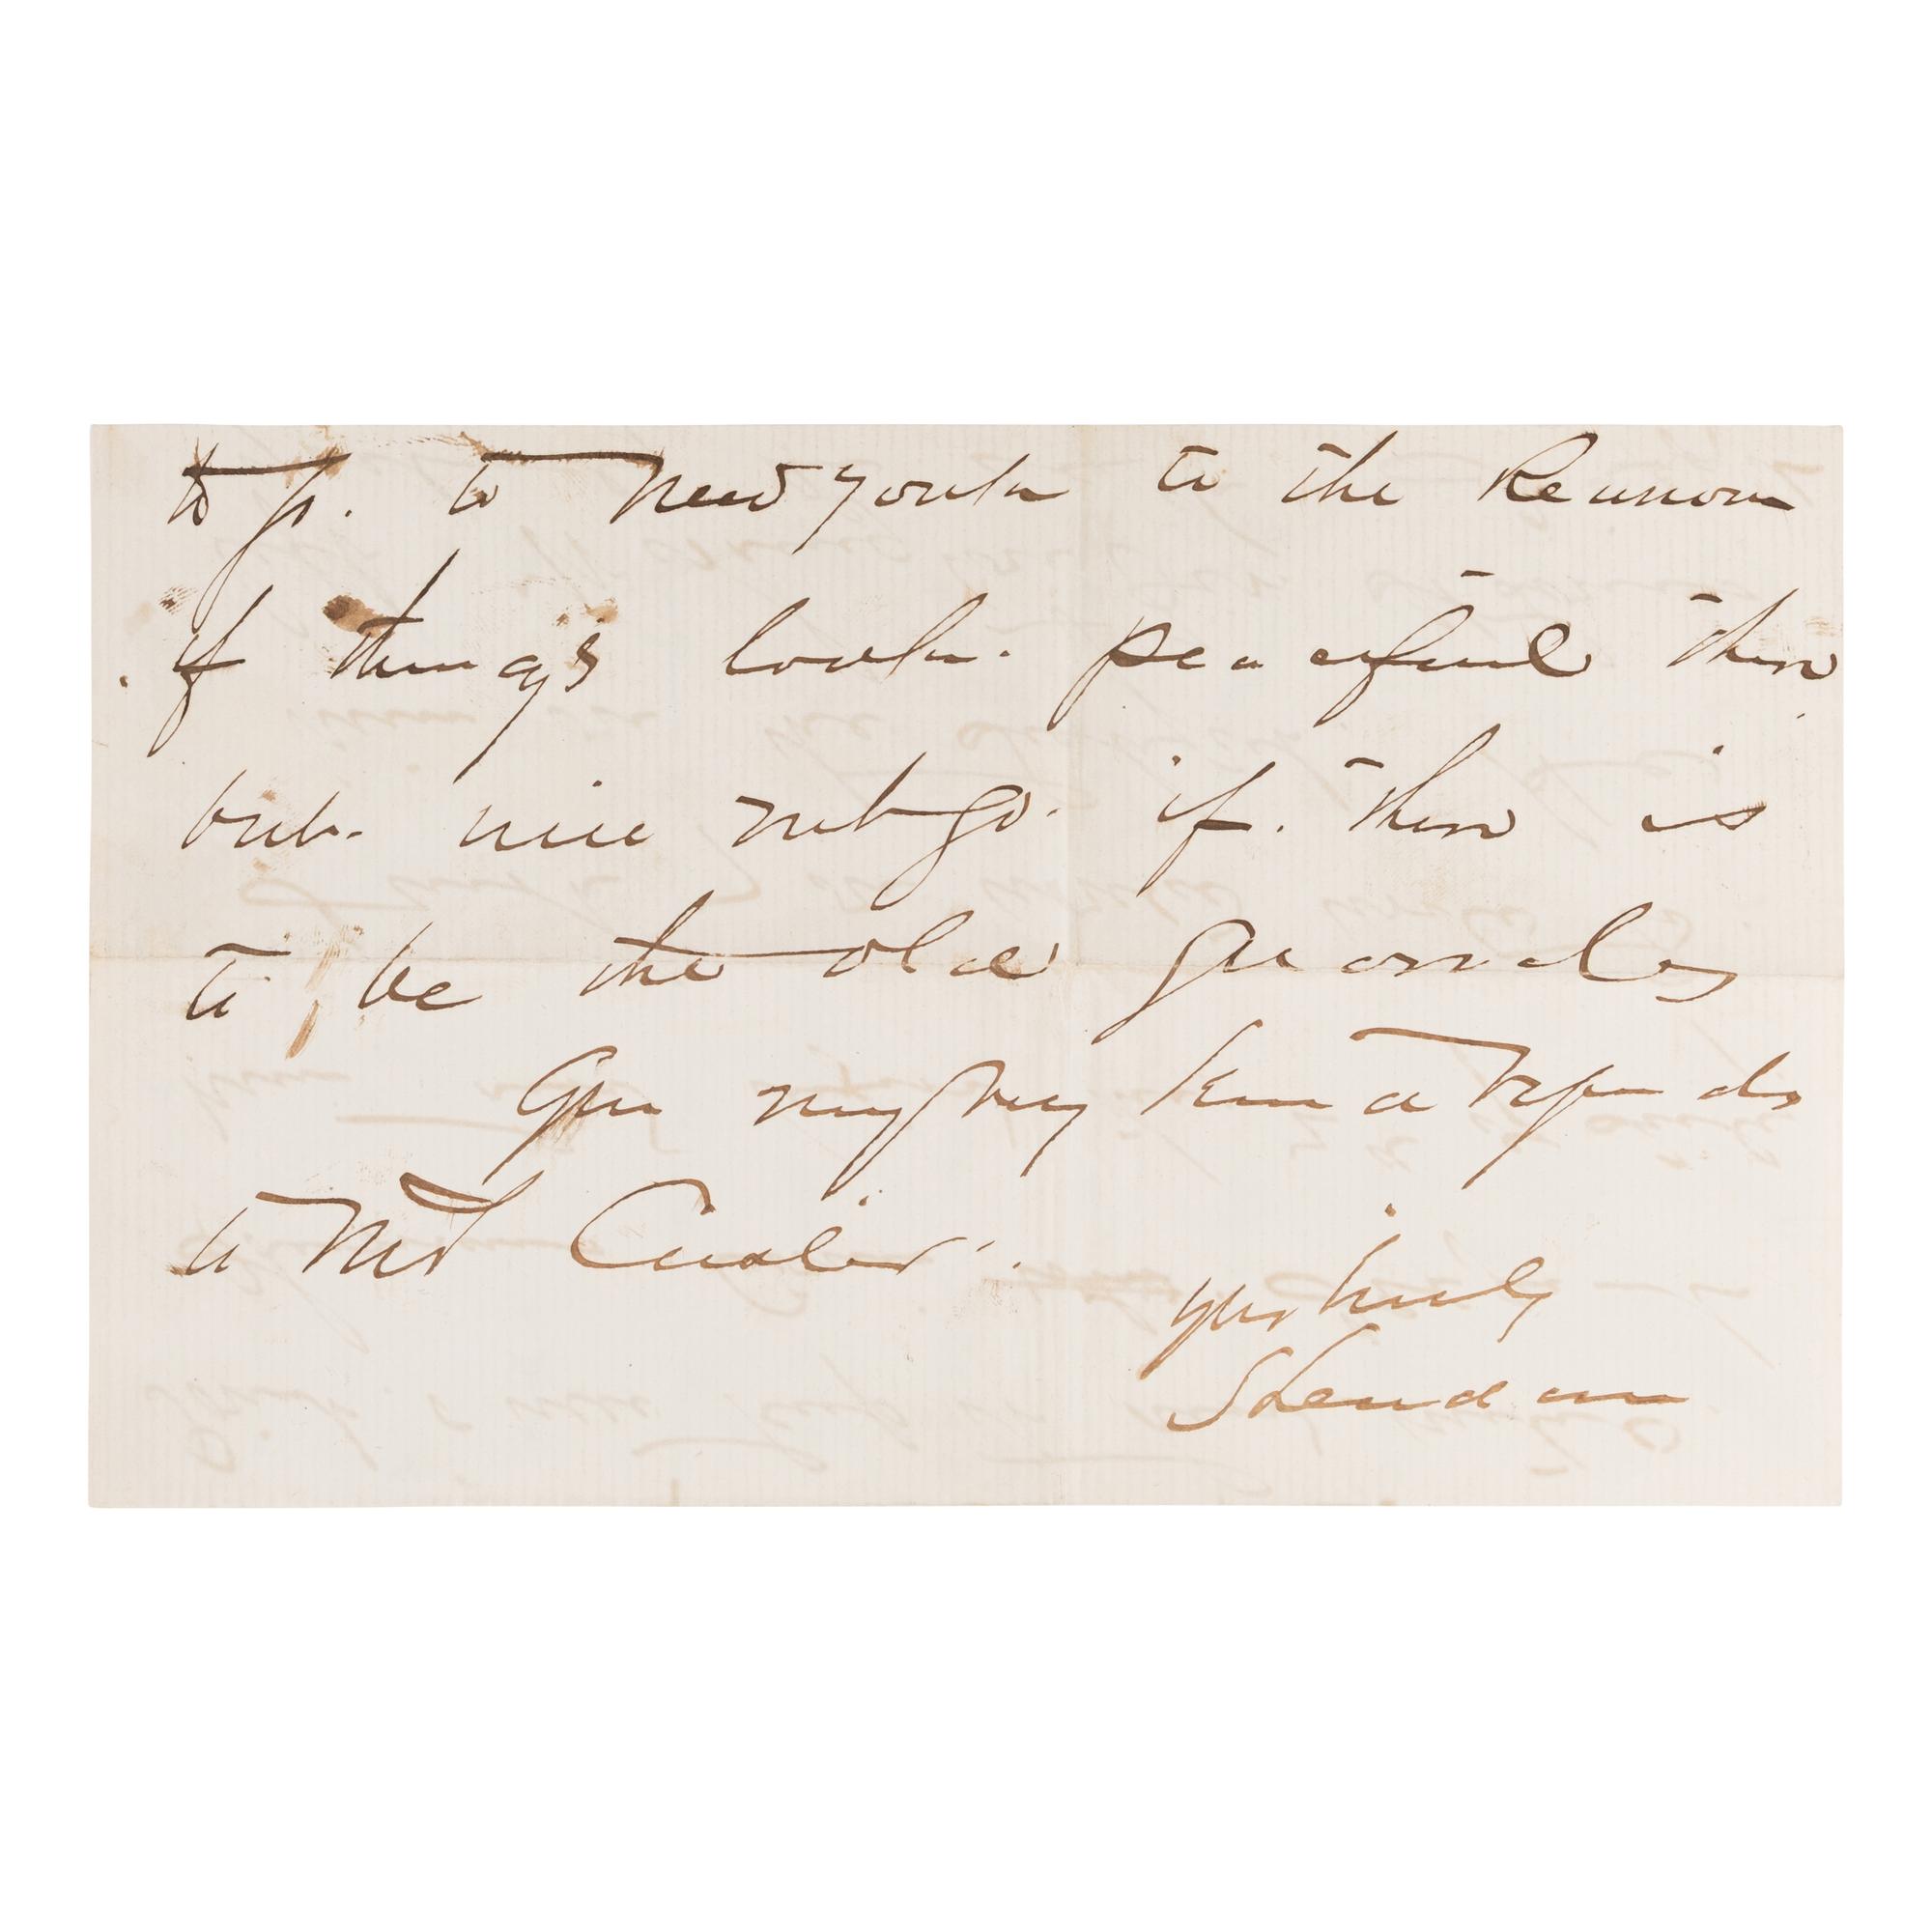 to go. to New York to the Reunion
if things look. peaceful there
but. will not go. if. there is
to be the old quarrels
Give my very kind regards
to Mrs Custer.
yours truly
Sheridan